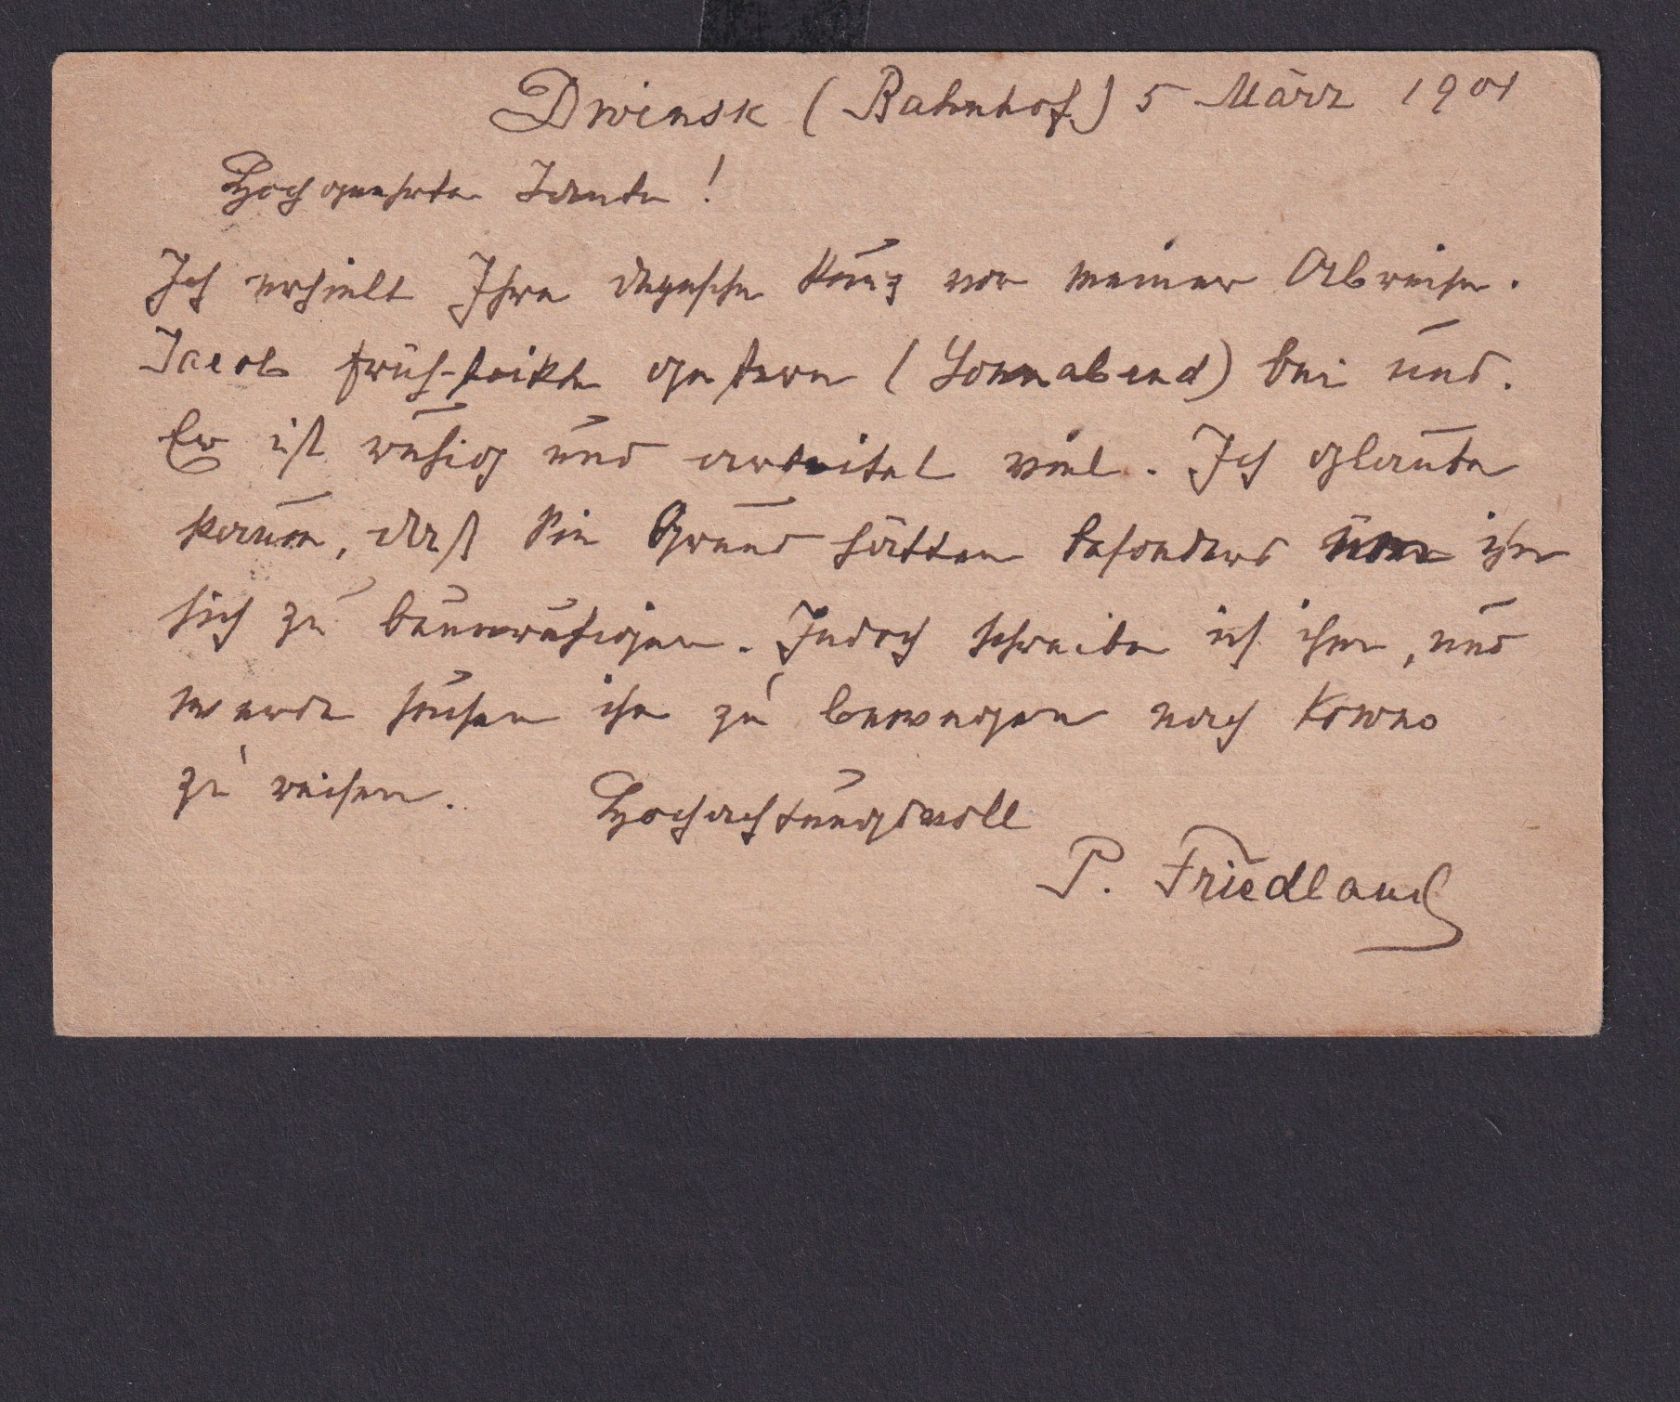 Dwinsk (Bahnhof) 5 März 1901
Hochgeehrte Tante!
Ich erhielt Ihre depesche kurz vor meiner Abreise.
Jacob früh-stückte gestern (Sonnabend) bei uns.
Er ist ruhig und arbeitet viel. Ich glaube
kaum, daß Sie Grund hätten besonders über ihn
sich zu beunruhigen. Jedoch schreibe ich ihm, und
werde suchen ihn zu bewegen nach Kowno
zu reisen. Hochachtungsvoll
P. Friedland